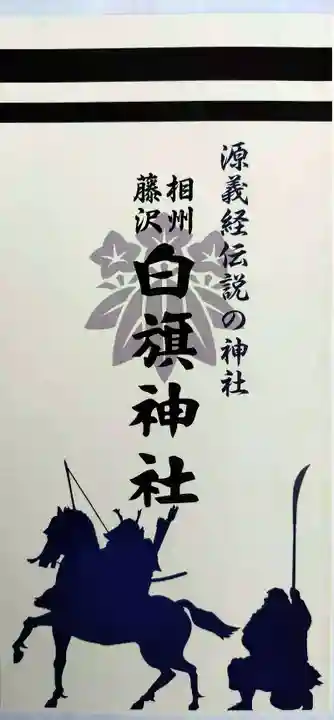 源義経伝説の神社
相州
藤沢
白旗神社